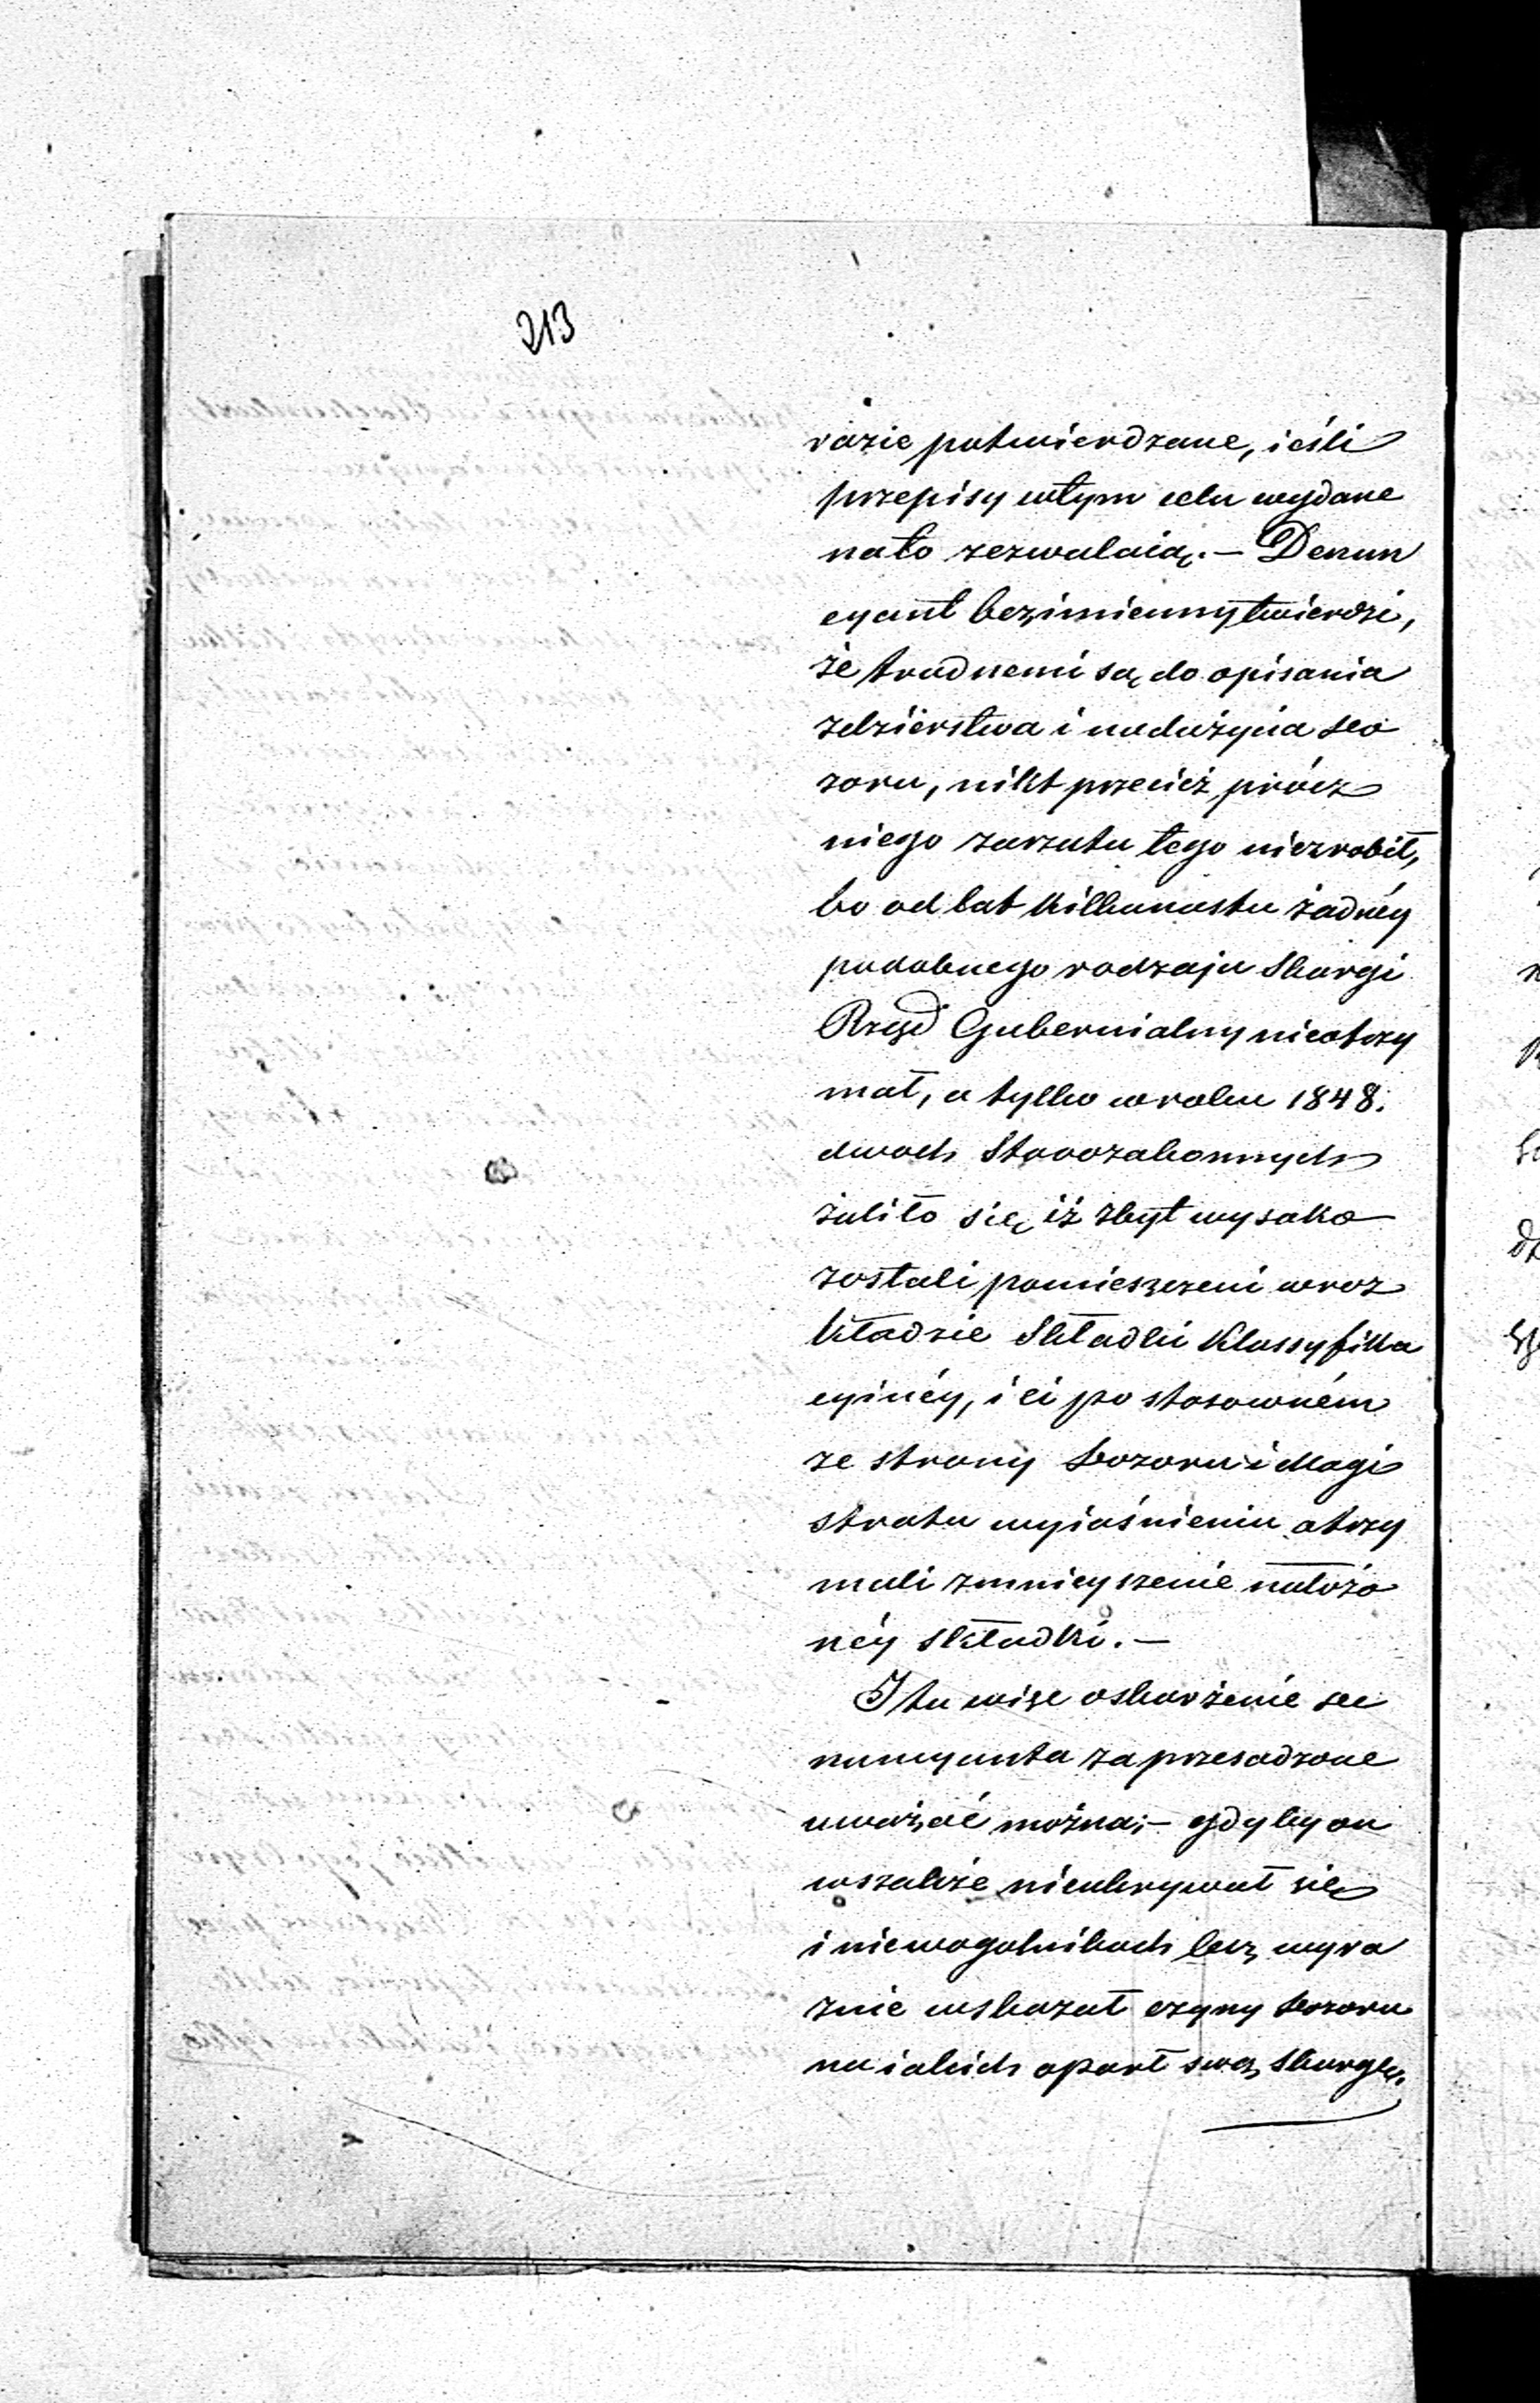 213
razie potwierdzane, ieśli
przepisy wtym celu wydane
nato zezwalaią. — Denun
cyant bezimienny twierdzi,
że trudnemi są do opisania
zdzierstwa i nadużycia Do
zoru, nikt przecież prócz
niego zarzutu tego niezrobił,
bo od lat kilkunastu żadnéy
podobnego rodzaju skargi
Rząd Gubernialny nieotrzy
mał, a tylko wroku 1848.
dwoch Starozakonnych
żaliło się iż zbyt wysoko
zostali pomieszczeni wroz
kładzie Składki Klassyfika
cyinéy, i ci po stosowném
ze strony Dozoru i Magi
stratu wyiaśnieniu otrzy
mali zmnieyszenie nałożo
néy składki. —
I tu więc oskarżenie De
nuncyanta za przesadzone
uważać można; — gdyby on
wszakże nieukrywał się
i niewogolnikach lecz wyra
znie wskazał czyny Dozoru
na iakich oparł swą skargę.